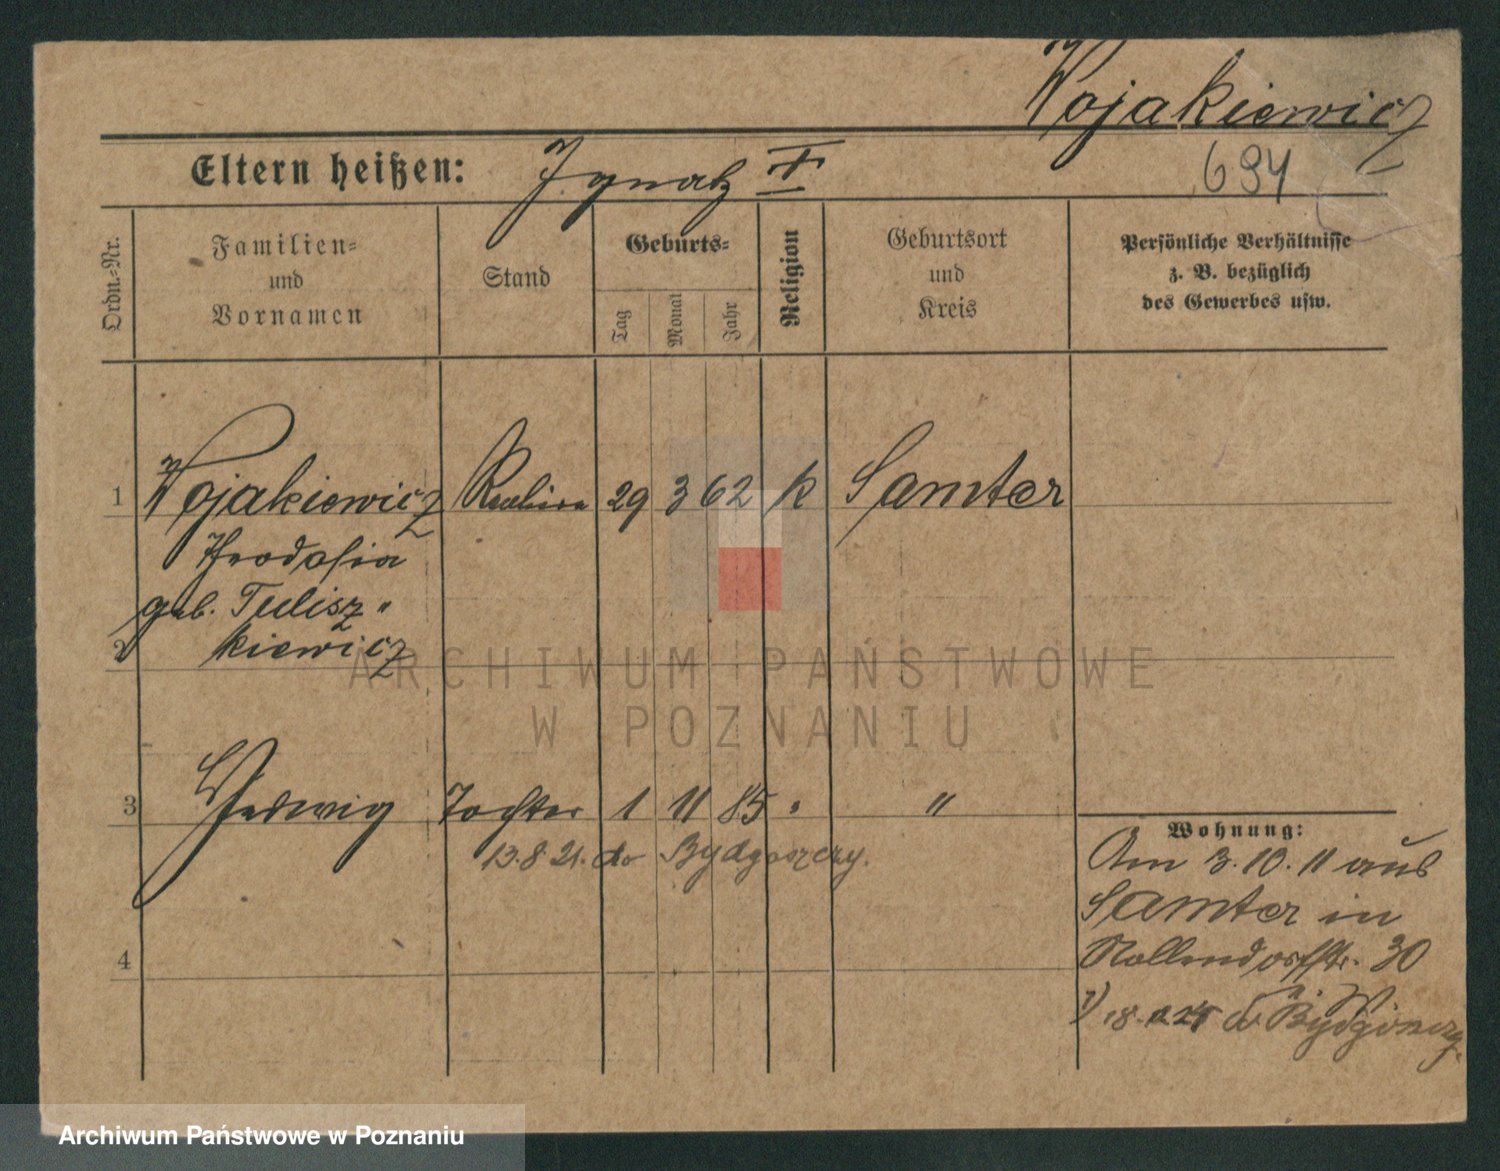 Wojakiewicz
Eltern heißen: Ignatz †
694
Ordn.=Nr.
Familien=
und
Vornamen
Stand
Geburts=
Tag
Monat
Jahr
Religion
Geburtsort
und
Kreis
Persönliche Verhältnisse
z. B. bezüglich
des Gewerbes usw.
1 Wojakiewicz 29 3 62 k Samter
Theodosia
geb. Tulisz"
2 kiewicz
3 Hedwig Tochter 1 11 85 " "
13.8.21. do Bydgoszczy.
4
Wohnung:
Am 3.10.11 aus
Samter in
Nollendorfstr. 30
1) 18. do Bydgoszczy.
ARCHIWUM PAŃSTWOWE
W POZNANIU
Archiwum Państwowe w Poznaniu